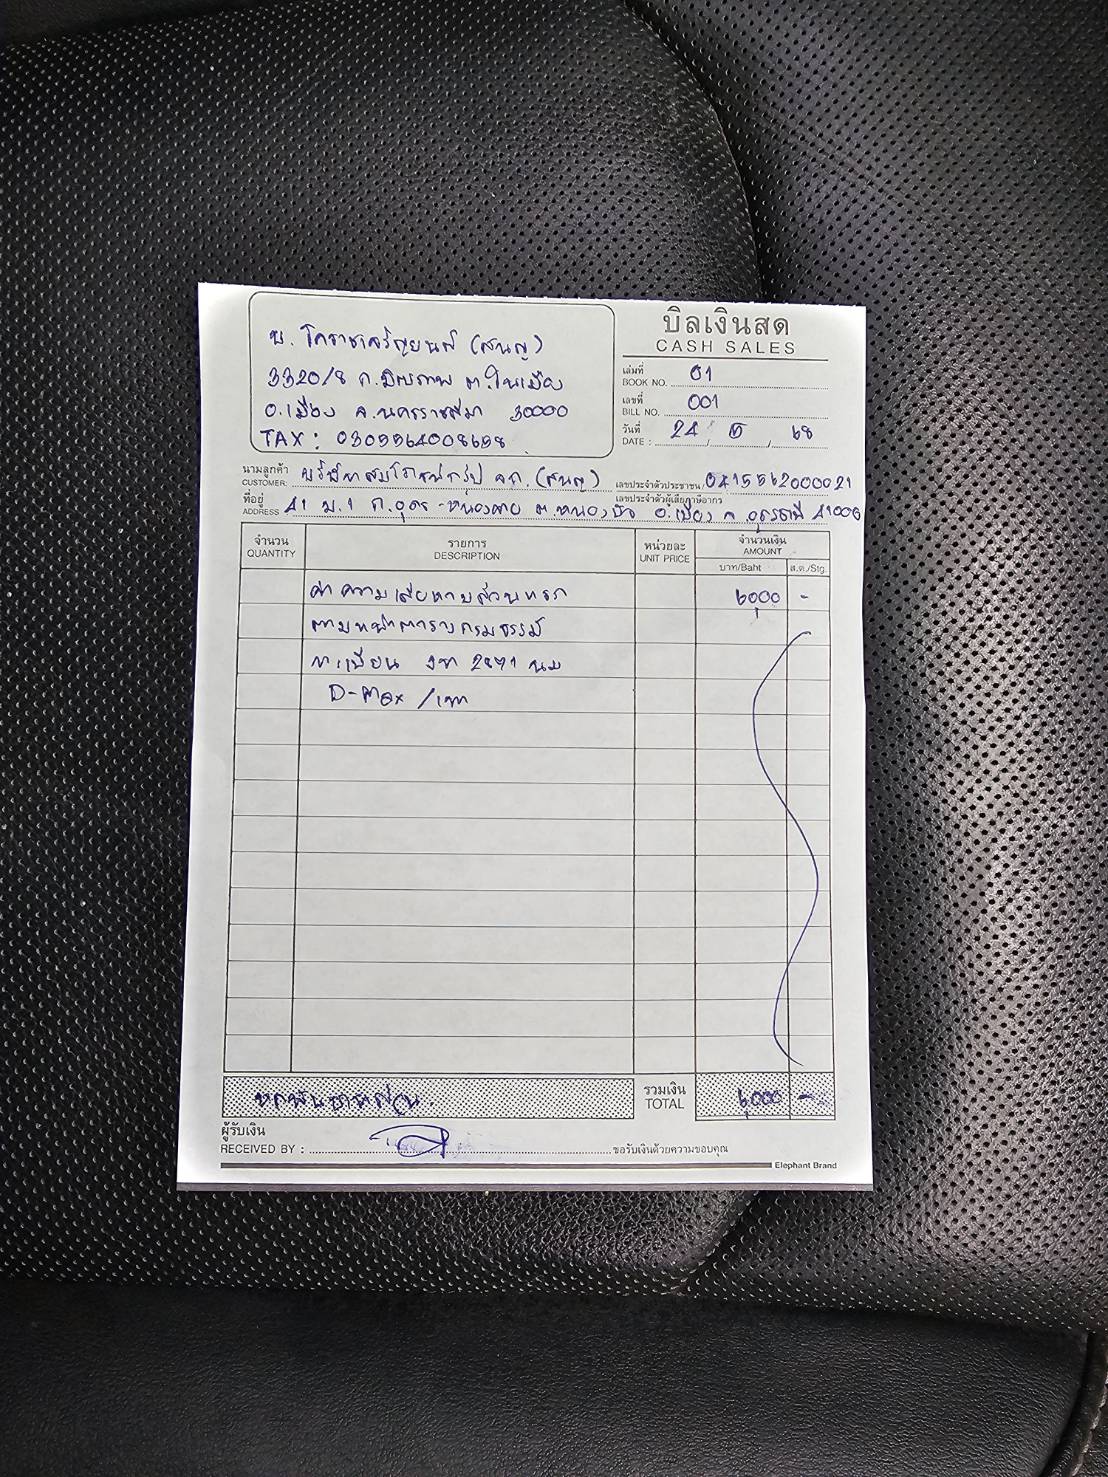 บิลเงินสด
CASH SALES
บ. โคราชเจริญยนต์ (สนญ)
3320/8 ถ.มิตรภาพ ต.ในเมือง
อ.เมือง จ.นครราชสีมา 30000
TAX : 0305564008698
เล่มที่ BOOK NO. 01
เลขที่ BILL NO. 001
วันที่ DATE : 24 / 5 / 68
นามลูกค้า CUSTOMER: บริษัท กรุ๊ป จก. (สนญ) เลขประจำตัวประชาชน เลขประจำตัวผู้เสียภาษีอากร 0415562000021
ที่อยู่ ADDRESS 41 ม.1 ถ.อุดร-หนองคาย ต.หนองบัว อ.เมือง จ.อุดรธานี 41000
จำนวน QUANTITY รายการ DESCRIPTION หน่วยละ UNIT PRICE จำนวนเงิน AMOUNT
บาท/Baht ส.ต./Stg.
ค่าความเสียหายส่วนแรก 6000 -
ตามหน้าตารางกรมธรรม์
ทะเบียน 2871 นม
D-Max /เทา
หกพันบาทถ้วน. รวมเงิน TOTAL 6000 -
ผู้รับเงิน
RECEIVED BY : ขอรับเงินด้วยความขอบคุณ
Elephant Brand